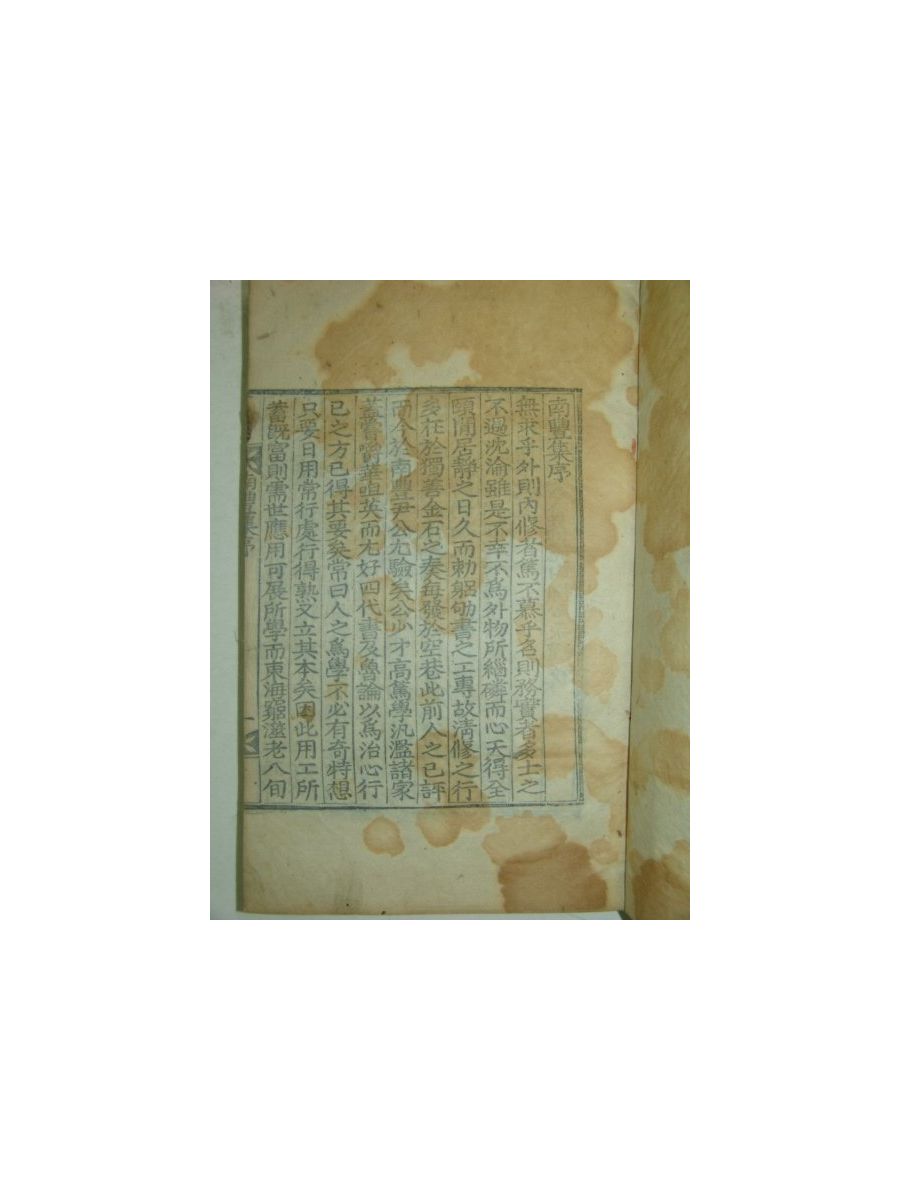 南豐集序
無求乎外則內修者篤不慕乎名則務實者多士之
不過沈淪雖是不幸不爲外物所緇磷而心天得全
頤閒居靜之日久而勅躳劬書之工專故淸修之行
多在於獨善金石之奏每發於空巷此前人之已評
而今於南豐尹公尤驗矣公少才高篤學汎濫諸家
蓋嘗嚼華咀英而尤好四代書及魯論以爲治心行
己之方已得其要矣常曰人之爲學不必有奇特想
只要日用常行處行得熟又立其本矣因此用工所
蓄旣富則需世應用可展所學而東海老八旬
南豐集序
一